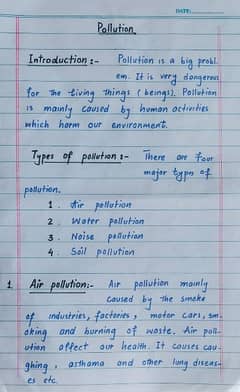 DATE:
Pollution
Introduction :- Pollution is a big probl
em. It is very dangerous
for the living things (beings). Pollution
is mainly caused by human activities
which harm our environment.
Types of pollution :- There are four
major types of
pollution.
1. Air pollution
2. Water pollution
3. Noise pollution
4. Soil pollution
1. Air pollution:- Air pollution mainly
caused by the smoke
of industries, factories, motor cars, sm
oking and burning of waste. Air poll
ution affect our health. It causes cou
ghing, asthama and other lung diseas
es etc.